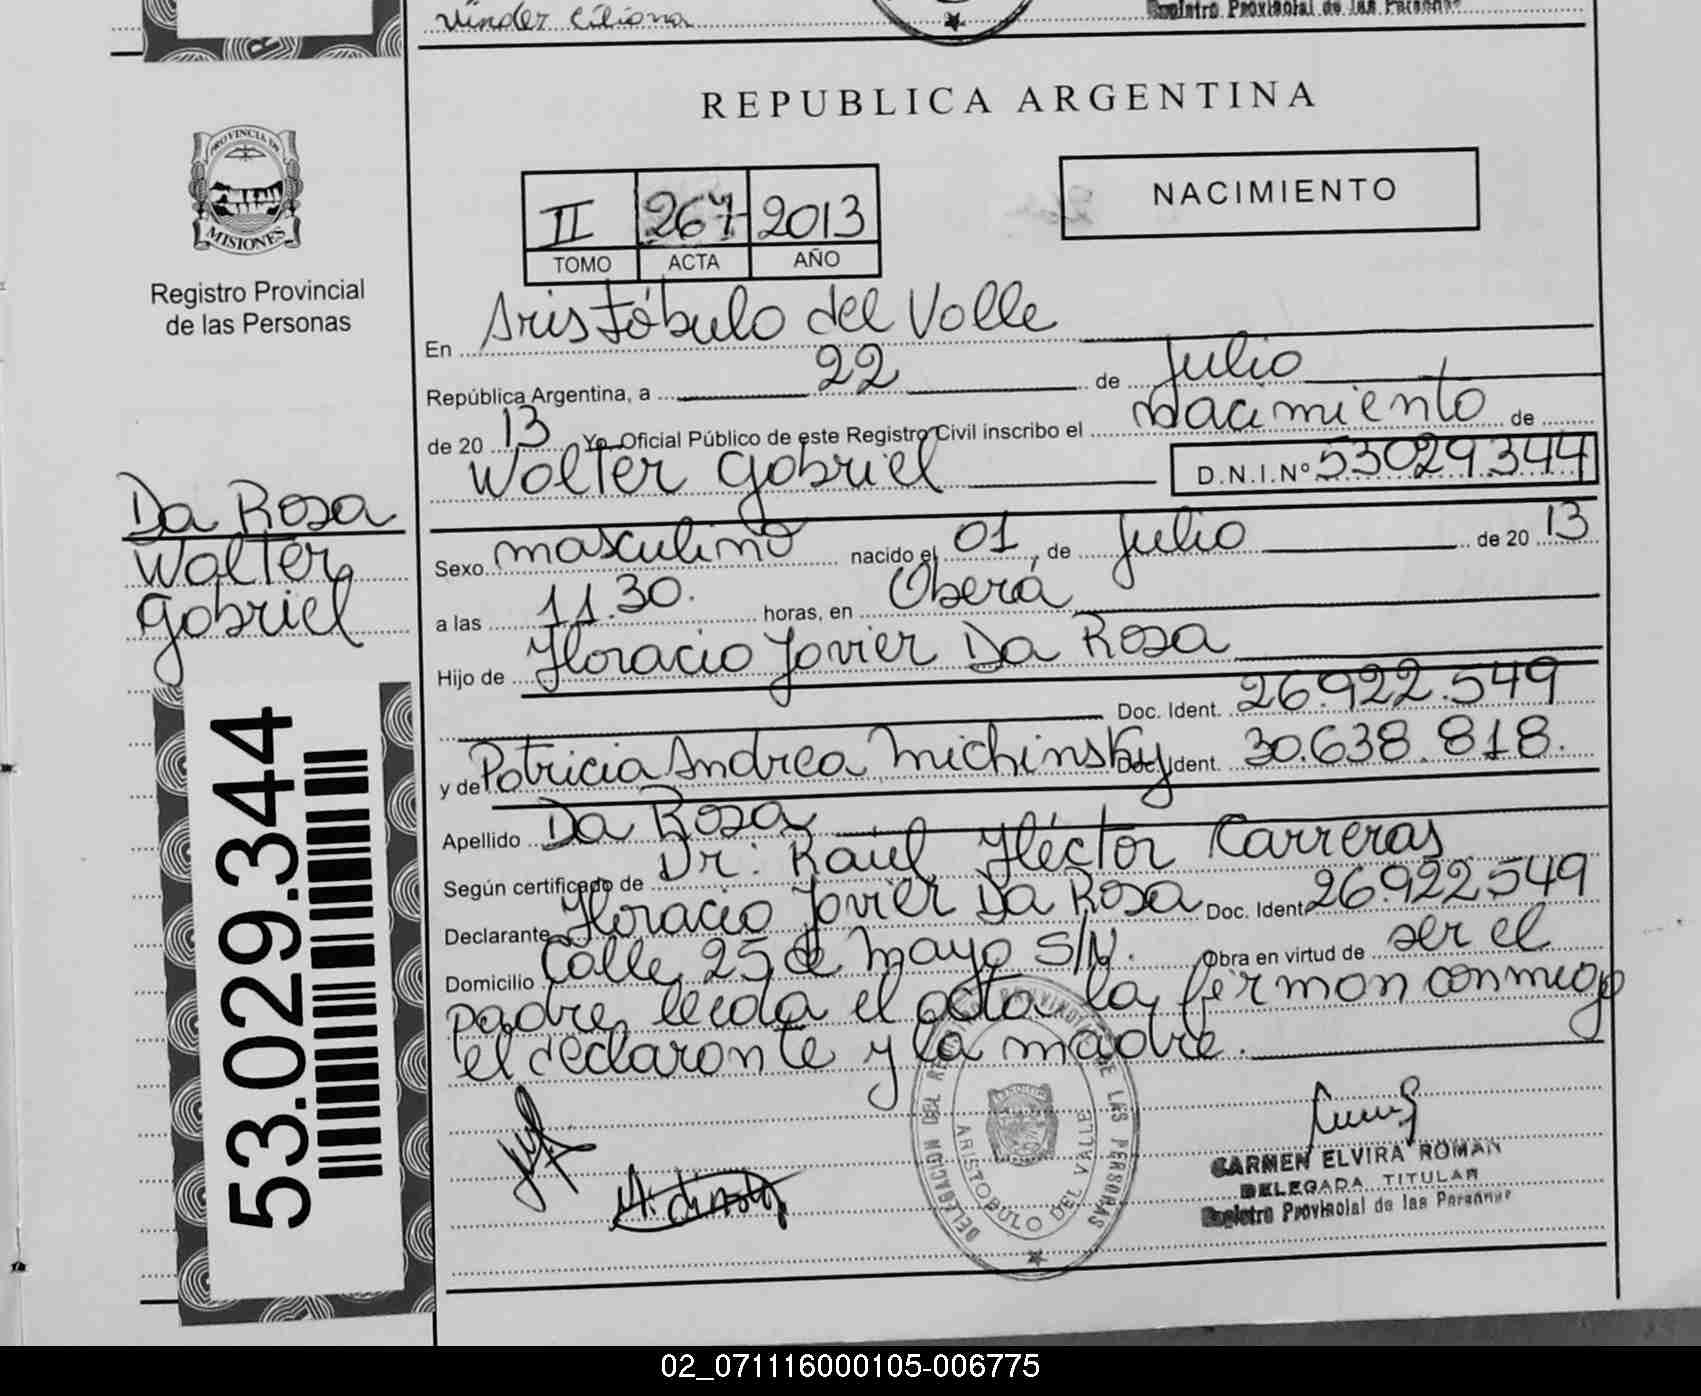 vinder Liliana
Registro Provincial de las Personas
REPUBLICA ARGENTINA
PROVINCIA DE
MISIONES
Registro Provincial
de las Personas
II 267 2013
TOMO ACTA AÑO
NACIMIENTO
En Aristóbulo del Valle
República Argentina, a 22 de Julio
de 20 13 Yo Oficial Público de este Registro Civil inscribo el Nacimiento de
Walter Gabriel D.N.I.Nº 53029344
Da Rosa
Walter
Gabriel
Sexo masculino nacido el 01, de Julio de 20 13
a las 11.30. horas, en Oberá
Hijo de Horacio Javier Da Rosa
Doc. Ident. 26.922.549
y de Patricia Andrea Michinsky Doc. Ident. 30.638.818.
Apellido Da Rosa
Según certificado de Dr: Raúl Héctor Carreras
Declarante Horacio Javier Da Rosa Doc. Ident. 26.922.549
Domicilio Calle 25 de mayo S/N. Obra en virtud de ser el
padre, leida el acta la firman conmigo
el declarante y la madre.
53.029.344
DELEGACION DEL REGISTRO PROVINCIAL DE LAS PERSONAS
ARISTOBULO DEL VALLE
CARMEN ELVIRA ROMAN
DELEGADA TITULAR
Registro Provincial de las Personas
02_071116000105-006775